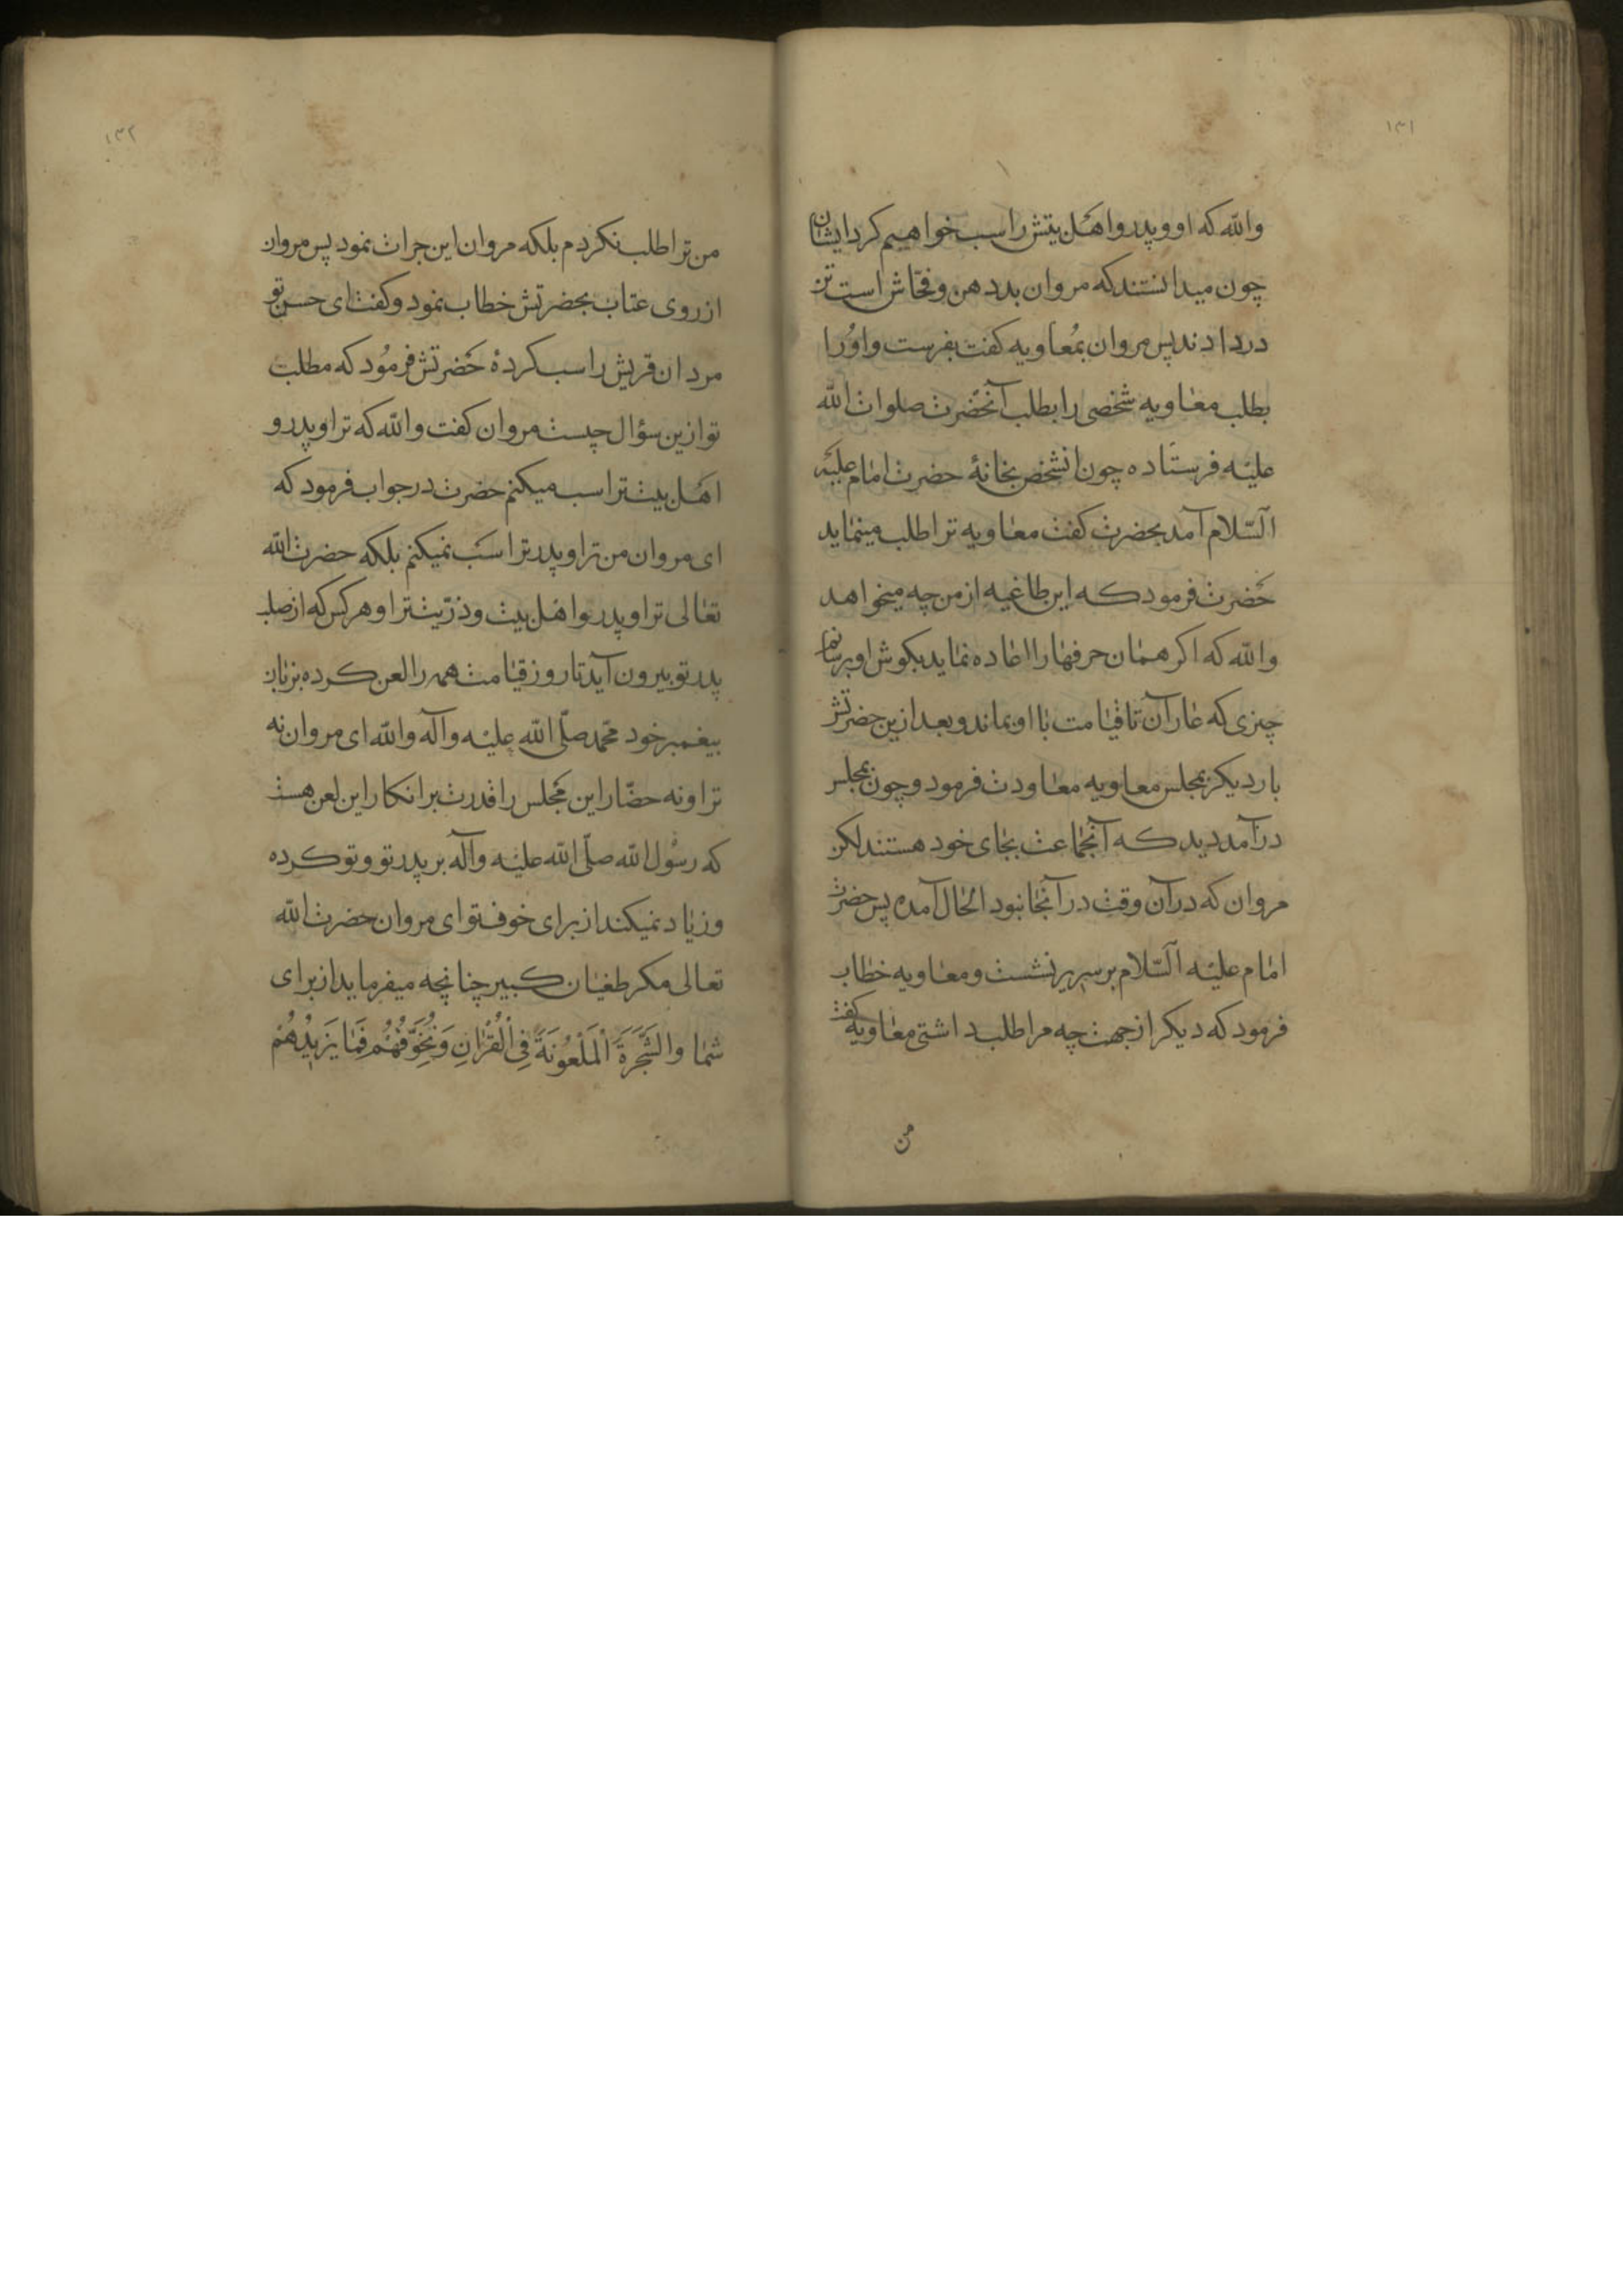 ۱۳۱
والله که او و پدر و اهل بیتش را سب خواهیم کرد ایشان
چون میدانستند که مروان بد دهن و فحاش است تن
در دادند پس مروان بمُعاویه کفت بفرست و اوُرا
بطلب معاویه شخصی را بطلب آنحضرت صلوات الله
علیه فرستاده چون انشخص بخانهٔ حضرت امام علیه
السّلام آمد بحضرت کفت معاویه ترا طلب مینماید
حَضرت فرمود که این طاغیه از من چه میخواهد
والله که اکر همان حرفها را اعاده نماید بکوش او برسانم
چیزی که عار آن تا قیامت با او بماند و بعد ازین حضرتش
بار دیکر بمجلس معاویه معاودت فرمود و چون بمجلس
درآمد دید که آنجماعت بجای خود هستند لکن
مروان که در آن وقت در آنجا نبود الحال آمده پس حضرت
امام علیه السّلام بر سریر نشست و معاویه خطاب
فرمود که دیکر از جهت چه مرا طلب داشتی معاویه کفت
من
۱۳۲
من ترا طلب نکردم بلکه مروان این جرات نمود پس مروان
از روی عتاب بحضرتش خطاب نمود و کفت ای حسن تو
مردان قریش را سب کردهٔ حَضرتش فرمُود که مطلب
تو ازین سؤال چیست مروان کفت والله که ترا و پدر و
اهل بیت ترا سب میکنم حضرت در جواب فرمود که
ای مروان من ترا و پدر ترا سَب نمیکنم بلکه حضرت الله
تعالی ترا و پدر و اهل بیت و ذرّیت ترا و هر کس که از صلب
پدر تو بیرون آید تا روز قیامت همه را لعن کرده بزبان
پیغمبر خود محمد صلّی الله علیه و آله والله ای مروان نه
ترا و نه حضّار این مجلس را قدرت بر انکار این لعن هست
که رسُول الله صلّی الله علیه و آله بر پدر تو و تو کرده
و زیاد نمیکند از برای خوف تو ای مروان حضرت الله
تعالی مکر طغیان کبیر چنانچه میفرماید از برای
شما والشَّجَرَةَ الْمَلْعُونَةَ فِي الْقُرْانِ وَنُخَوِّفُهُمْ فَمَا يَزِيدُهُمْ